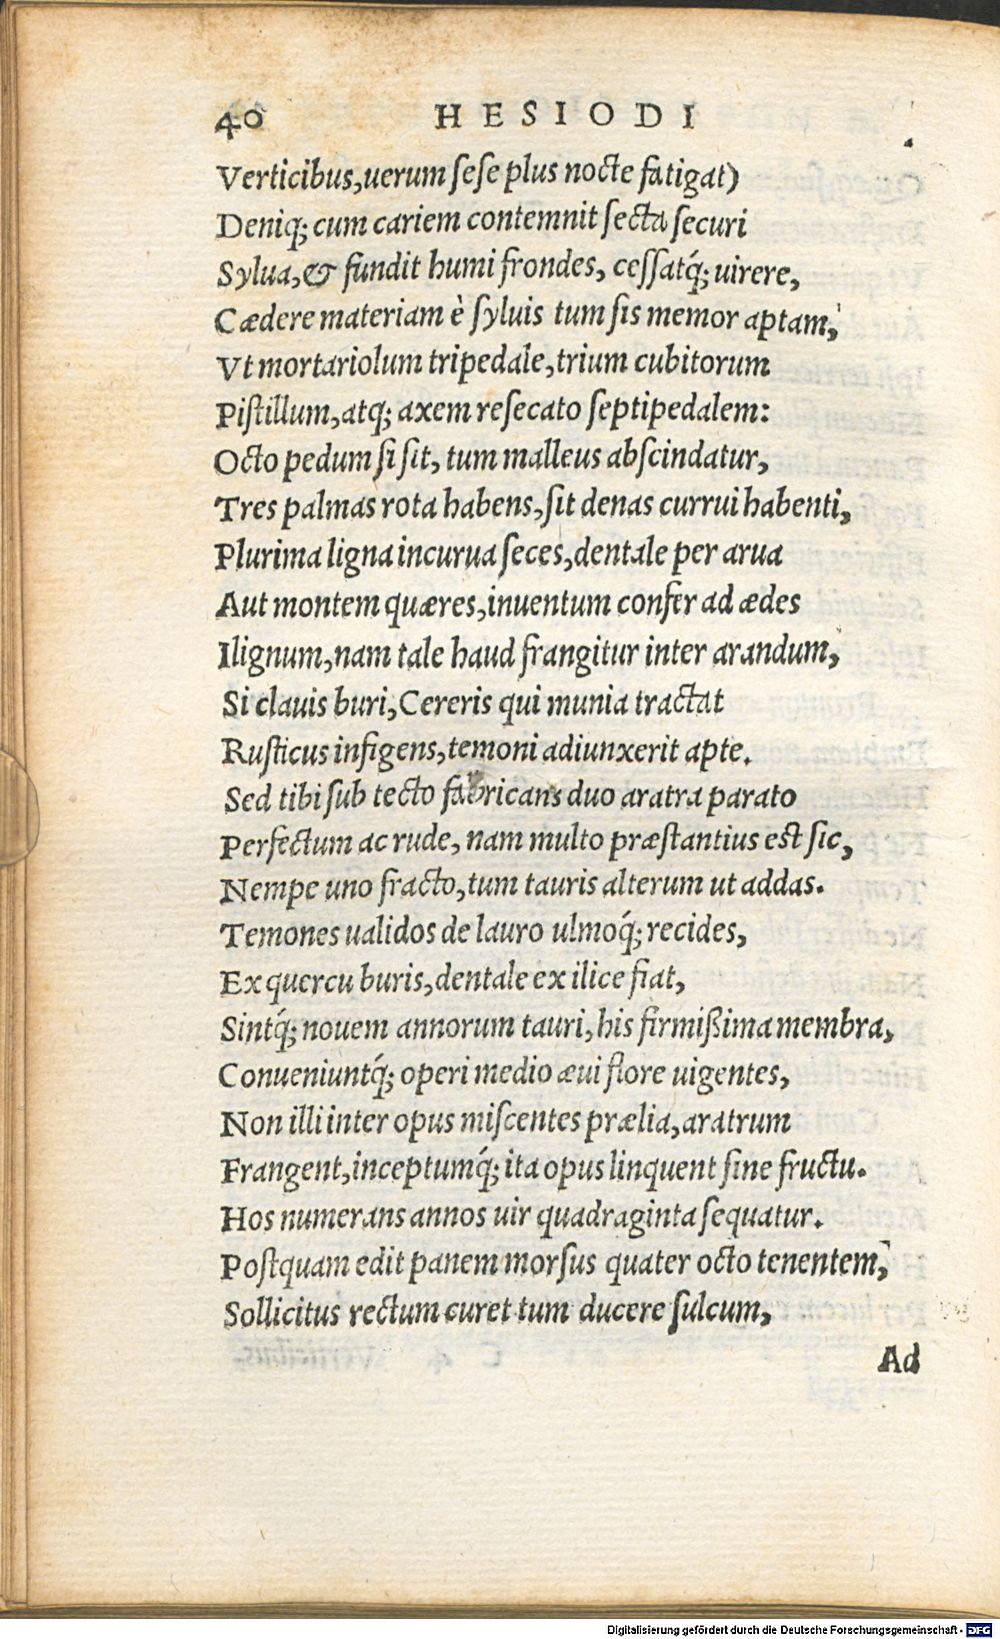 40 HESIODI
Verticibus, uerum ſeſe plus nocte fatigat)
Deniq; cum cariem contemnit ſecta ſecuri
Sylua, & fundit humi frondes, ceſſatq́; uirere,
Cædere materiam è ſyluis tum ſis memor aptam,
Vt mortariolum tripedale, trium cubitorum
Piſtillum, atq; axem reſecato ſeptipedalem:
Octo pedum ſi ſit, tum malleus abſcindatur,
Tres palmas rota habens, ſit denas currui habenti,
Plurima ligna incurua ſeces, dentale per arua
Aut montem quæres, inuentum confer ad ædes
Ilignum, nam tale haud frangitur inter arandum,
Si clauis buri, Cereris qui munia tractat
Ruſticus infigens, temoni adiunxerit apte.
Sed tibi ſub tecto fabricans duo aratra parato
Perfectum ac rude, nam multo præſtantius eſt ſic,
Nempe uno fracto, tum tauris alterum ut addas.
Temones ualidos de lauro ulmoq́; recides,
Ex quercu buris, dentale ex ilice fiat,
Sintq́; nouem annorum tauri, his firmißima membra,
Conueniuntq́; operi medio æui flore uigentes,
Non illi inter opus miſcentes prælia, aratrum
Frangent, inceptumq́; ita opus linquent ſine fructu.
Hos numerans annos uir quadraginta ſequatur.
Poſtquam edit panem morſus quater octo tenentem,
Sollicitus rectum curet tum ducere ſulcum,
Ad
Digitalisierung gefördert durch die Deutsche Forschungsgemeinschaft - DFG